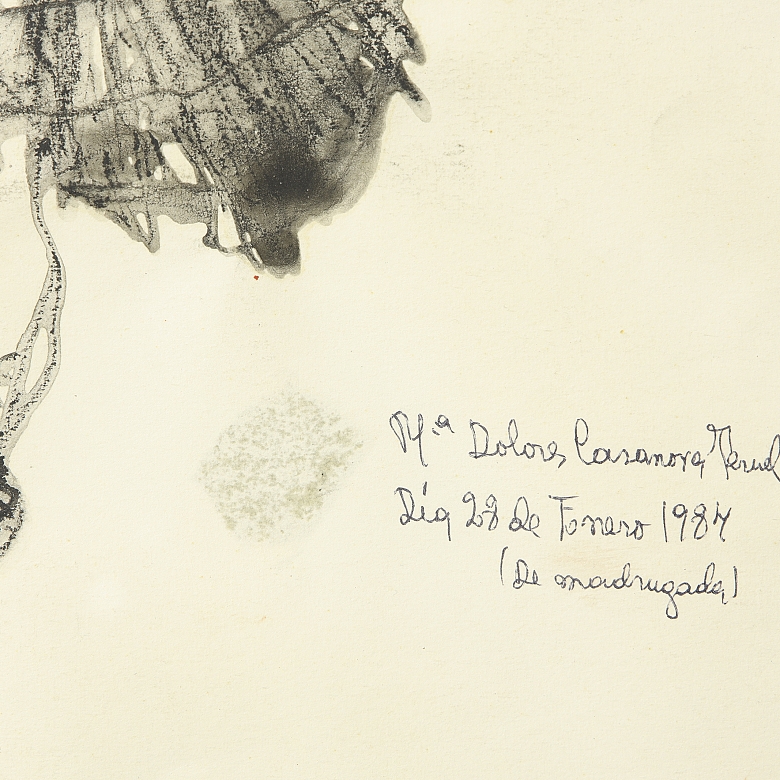 Mª Dolores Casanova Teruel
Día 28 de Enero 1987
(De madrugada)